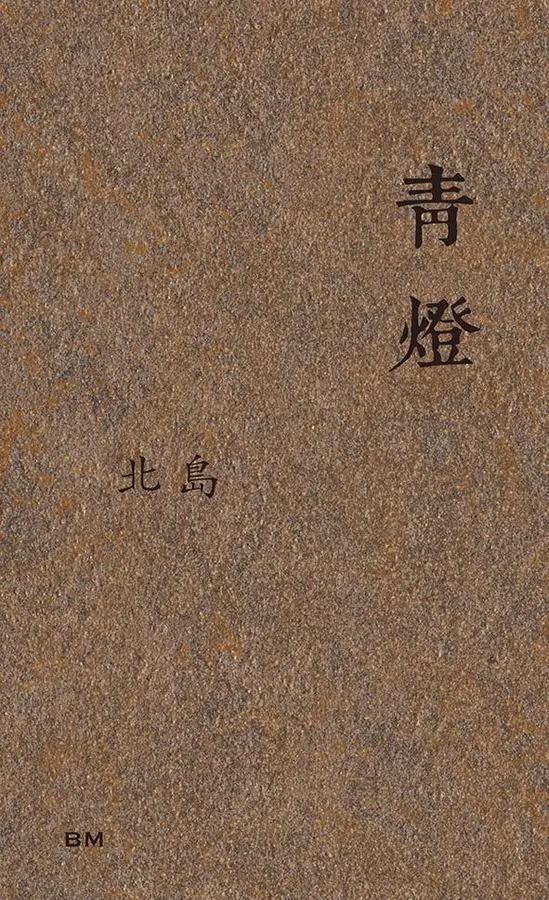 青燈
北島
BM